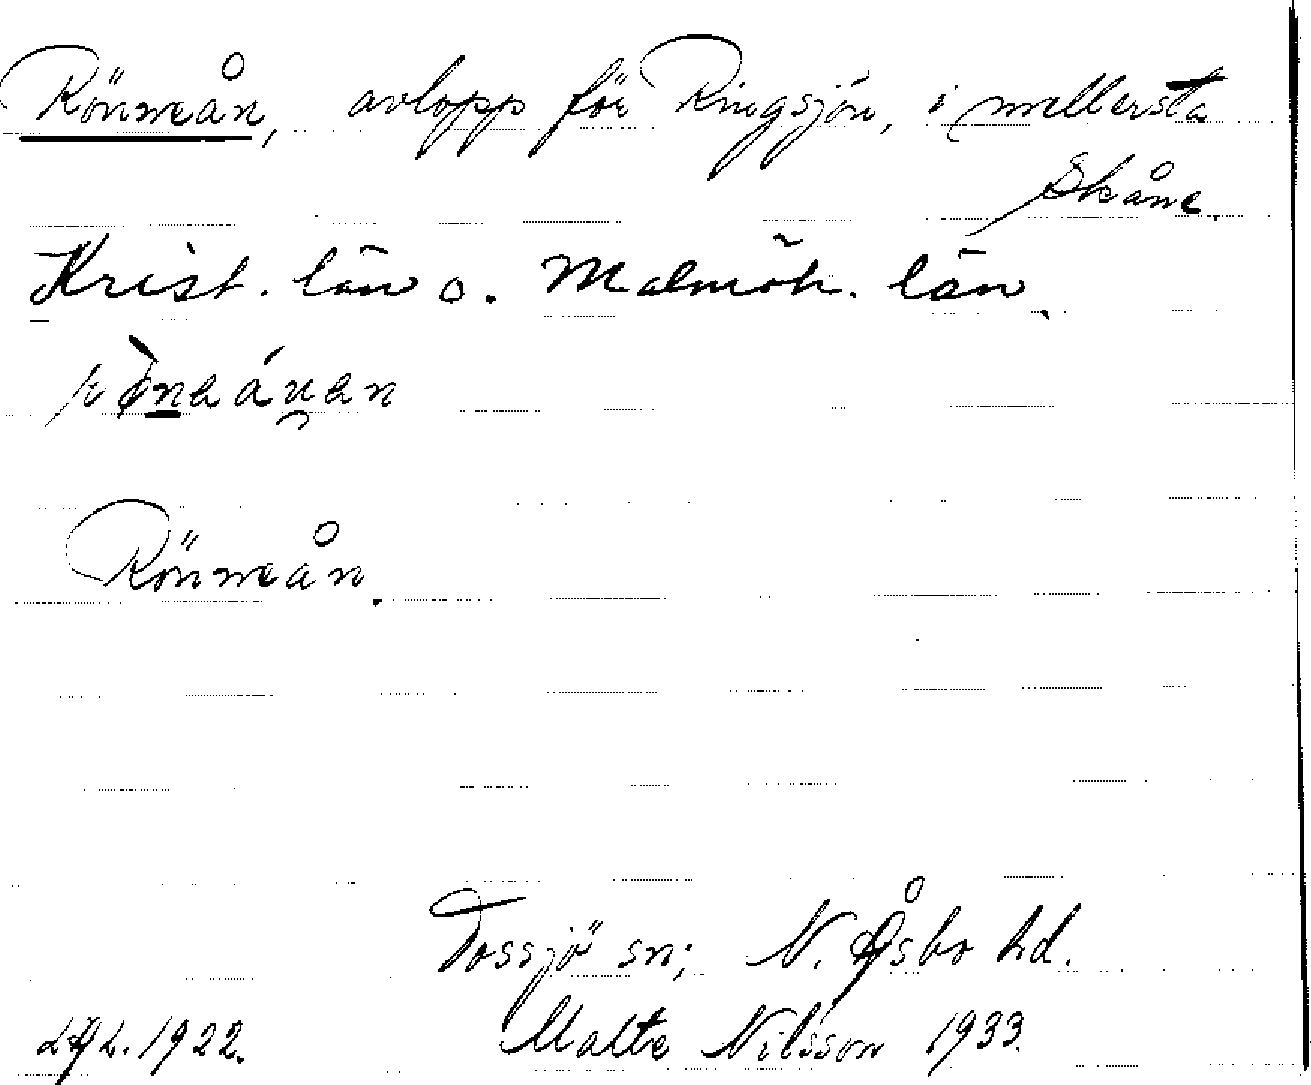 Rönneån, avlopp för Ringsjön, i mellersta
Skåne.
Krist. län o. Malmöh. län.
Rönneån.
Tossjö sn; N. Åsbo hd.
1922. Malte Nilsson 1933.